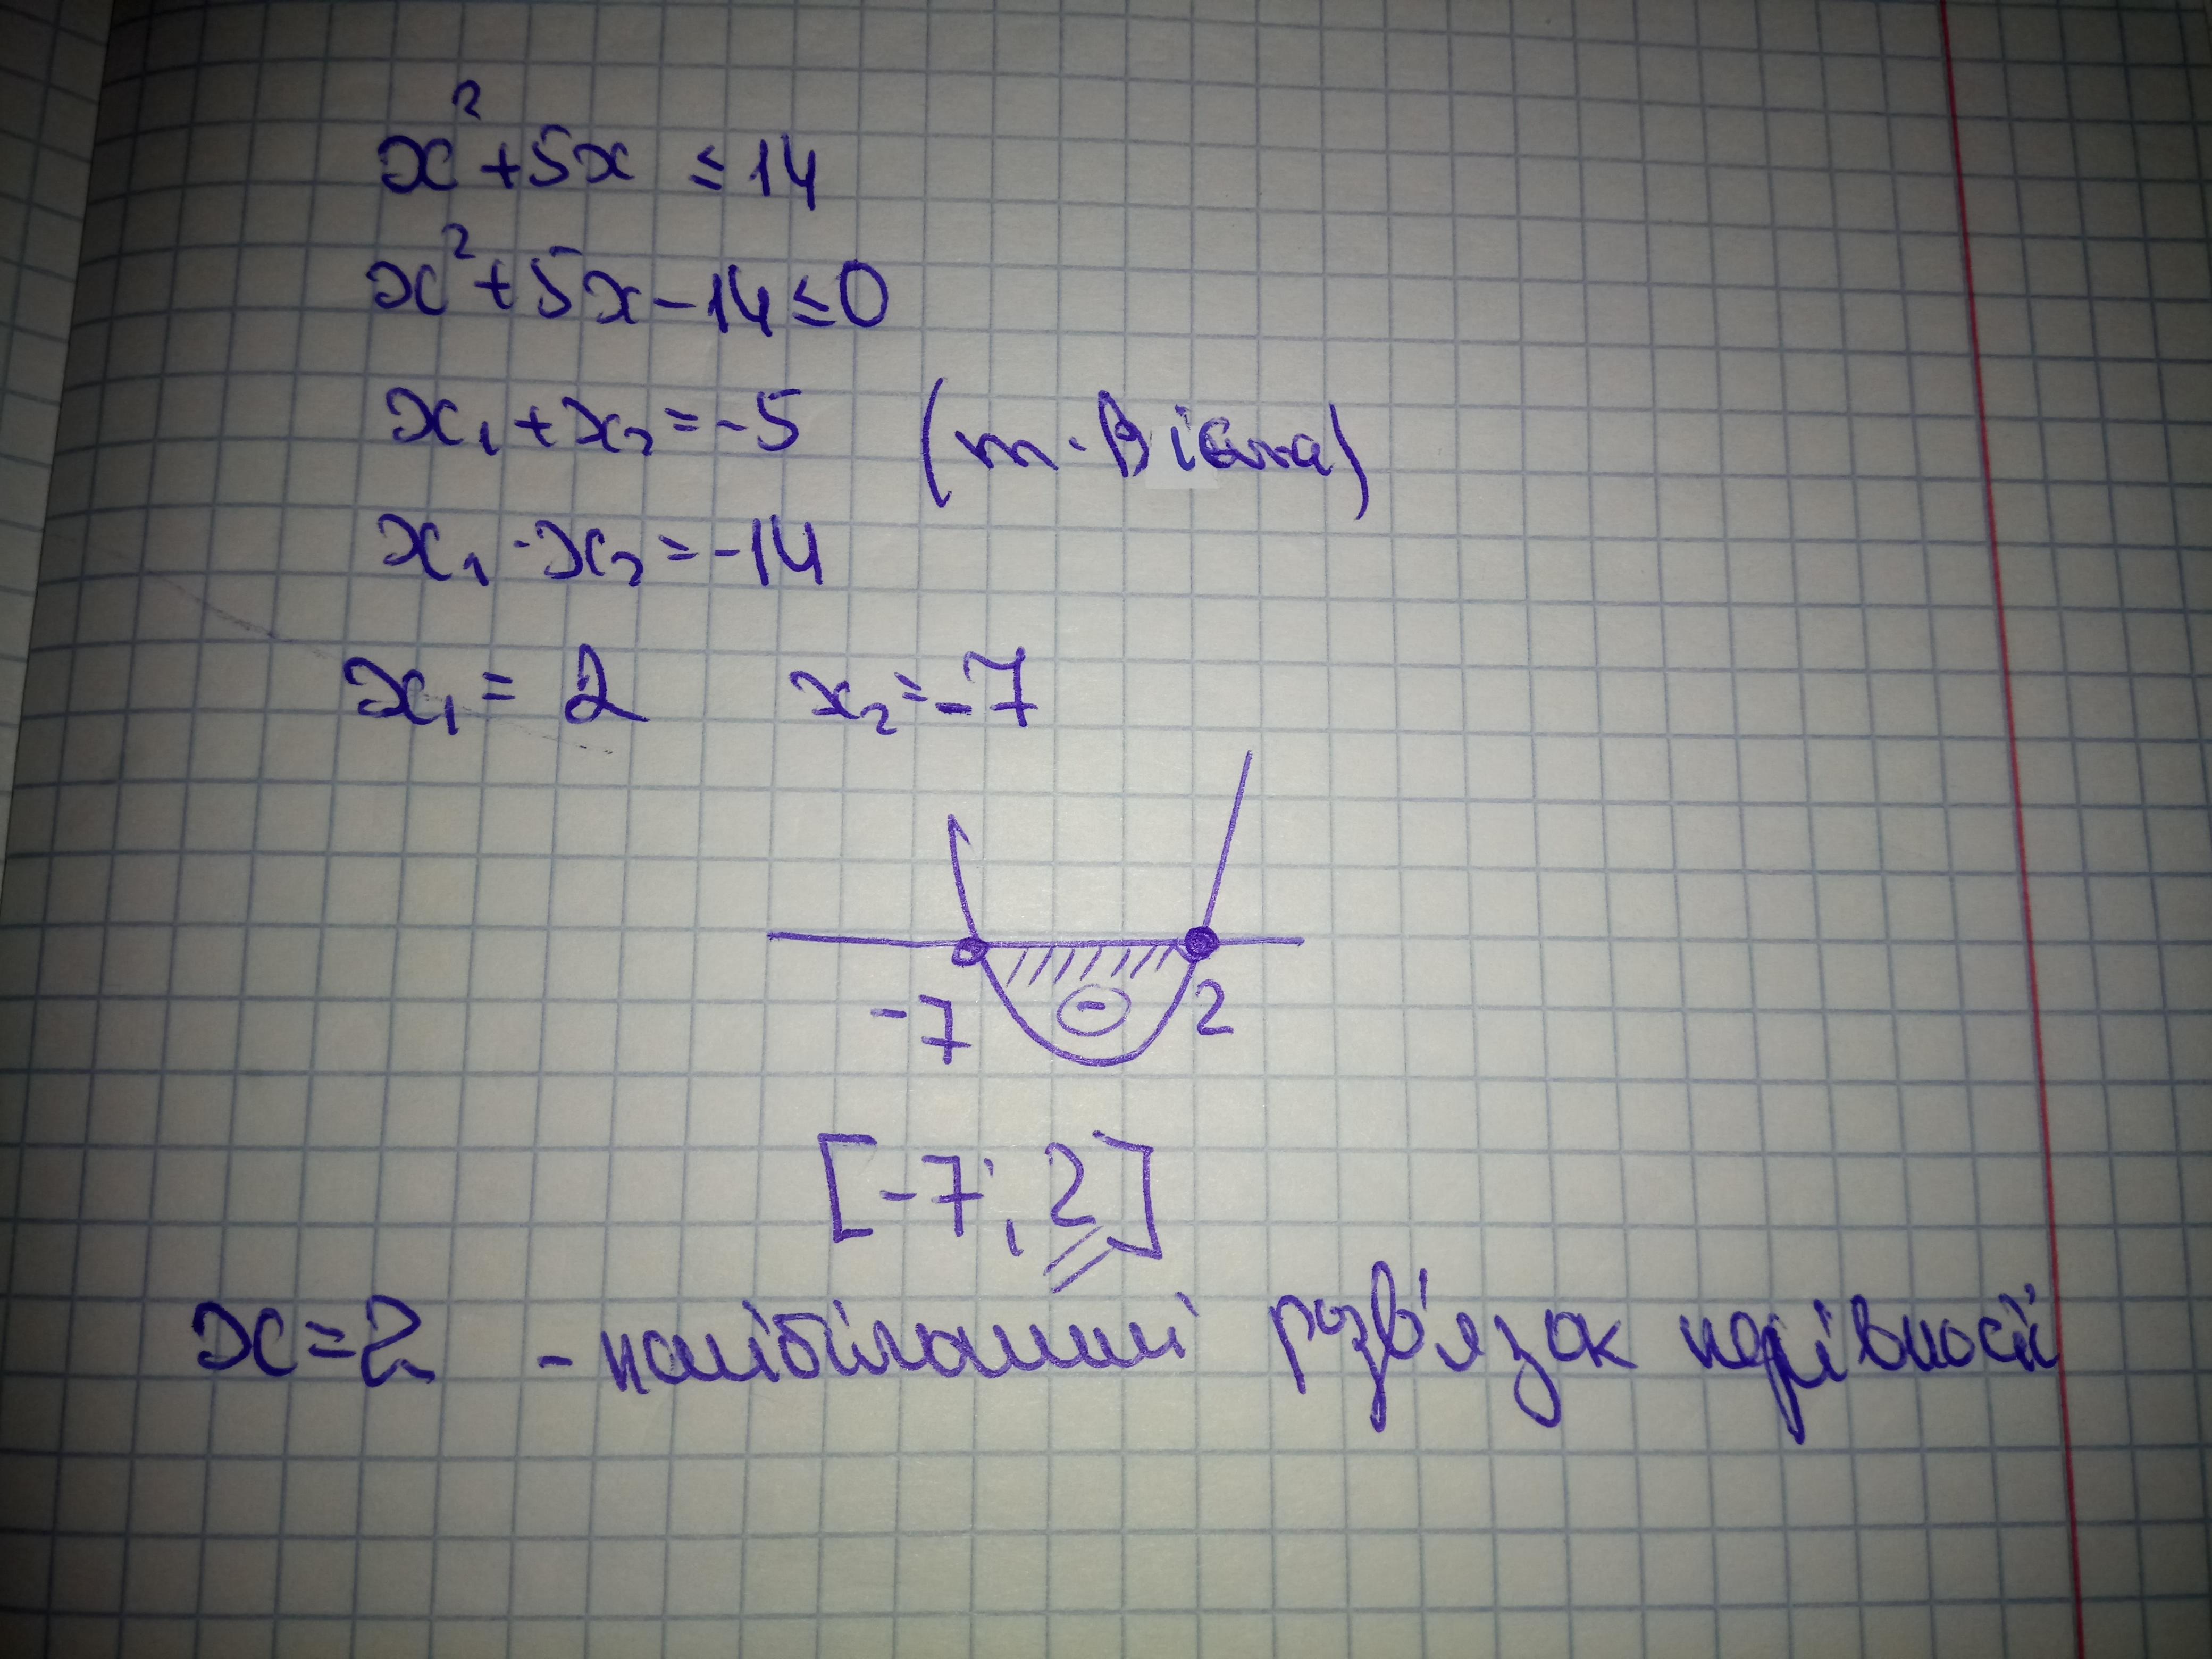 x² + 5x ≤ 14
x² + 5x - 14 ≤ 0
x₁ + x₂ = -5 (т. Вієта)
x₁ · x₂ = -14
x₁ = 2 x₂ = -7
-7 - 2
[-7; 2]
x = 2 - найбільший розв'язок нерівності